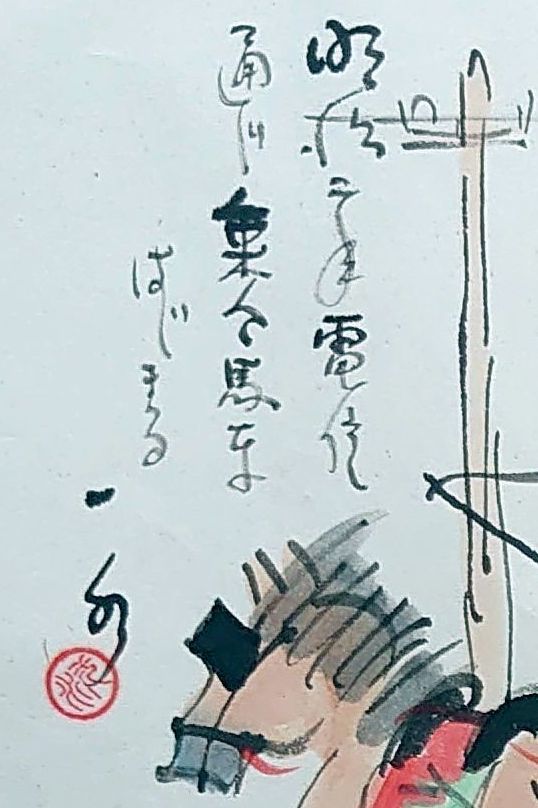 明治二年電信
通じ乗合馬車
はじまる
一